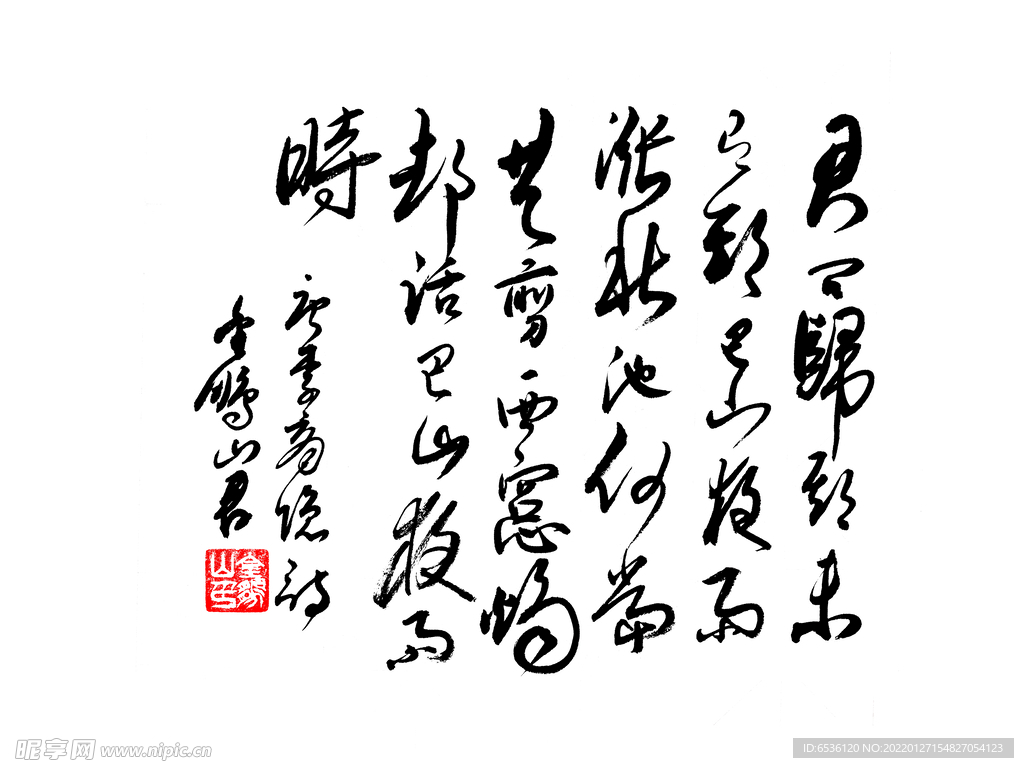 君問歸期未
有期巴山夜雨
漲秋池何當
共剪西窻燭
却話巴山夜雨
時
唐李商隱詩
金鵬山君
昵享网 www.nipic.cn
ID:6536120 NO:20220127154827054123